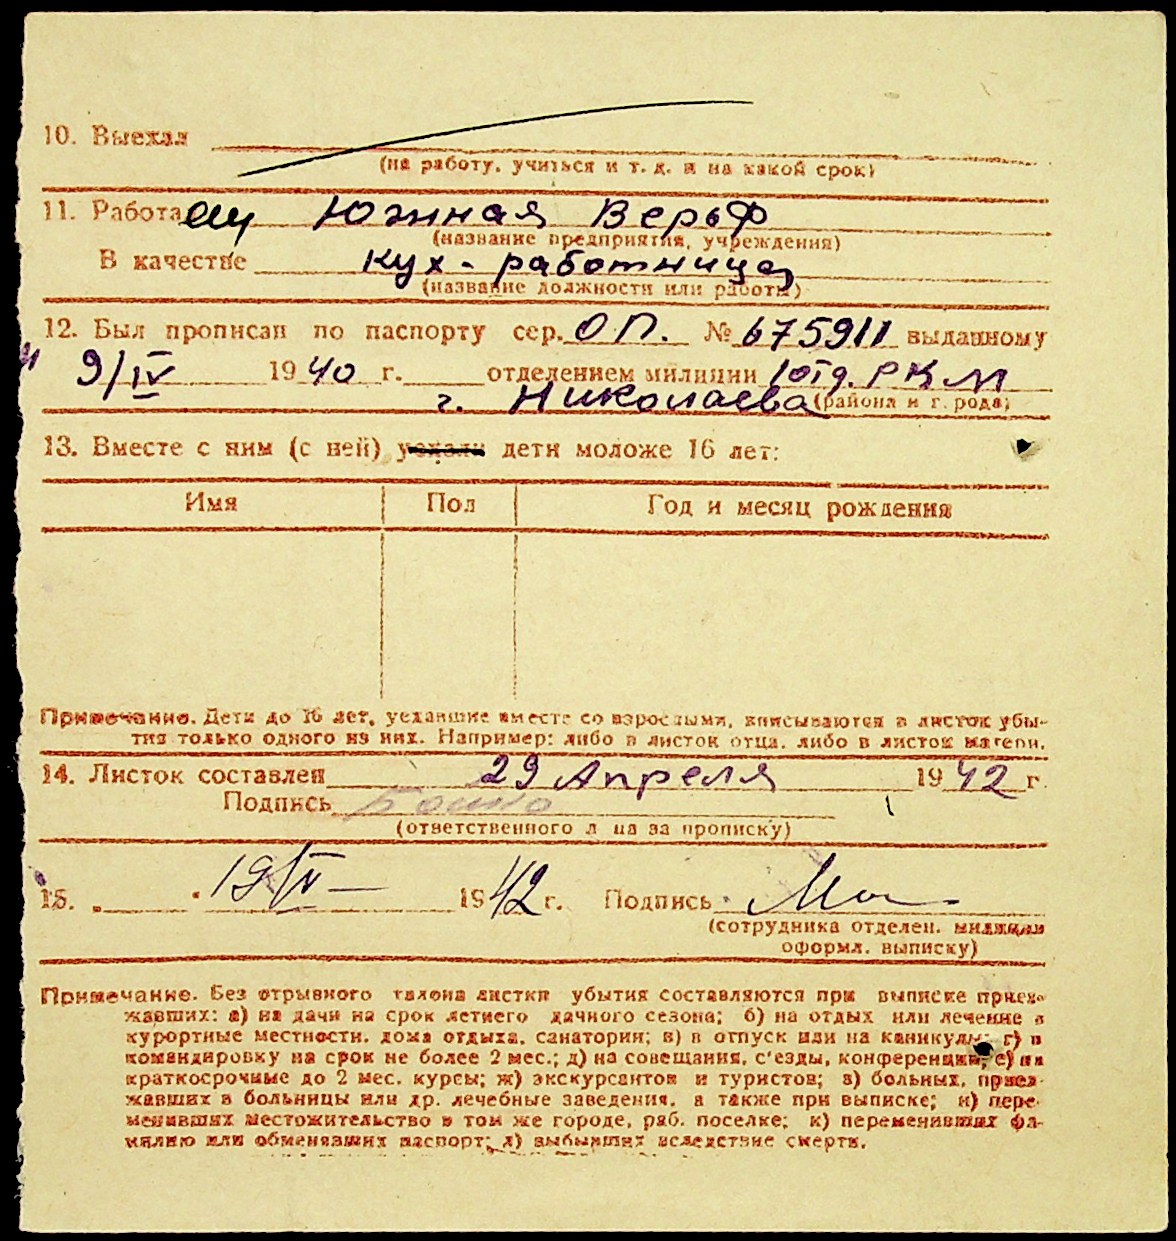 10. Выехал
(на работу, учиться и т. д. и на какой срок)
11. Работа ет Южная Верьф
(название предприятия, учреждения)
В качестве кух-работница
(название должности или работы)
12. Был прописан по паспорту сер. ОП. № 675911 выданному
9/IV 1940 г. отделением милиции 1 отд. РКМ
г. Николаева (района и города)
13. Вместе с ним (с ней) уехали дети моложе 16 лет:
Имя Пол Год и месяц рождения
Примечание. Дети до 16 лет, уехавшие вместе со взрослыми, вписываются в листок убы-
тия только одного из них. Например: либо в листок отца, либо в листок матери.
14. Листок составлен 29 Апреля 1942 г.
Подпись
(ответственного лица за прописку)
15. 19/IV 1942 г. Подпись
(сотрудника отделен. милиции
оформл. выписку)
Примечание. Без отрывного талона листки убытия составляются при выписке приез-
жавших: а) на дачи на срок летнего дачного сезона; б) на отдых или лечение в
курортные местности, дома отдыха, санатории; в) в отпуск или на каникулы; г) в
командировку на срок не более 2 мес.; д) на совещания, с'езды, конференции; е) на
краткосрочные до 2 мес. курсы; ж) экскурсантов и туристов; з) больных, приез-
жавших в больницы или др. лечебные заведения, а также при выписке; и) пере-
менивших местожительство в том же городе, раб. поселке; к) переменивших фа-
милию или обменявших паспорт; л) выбывших вследствие смерти.